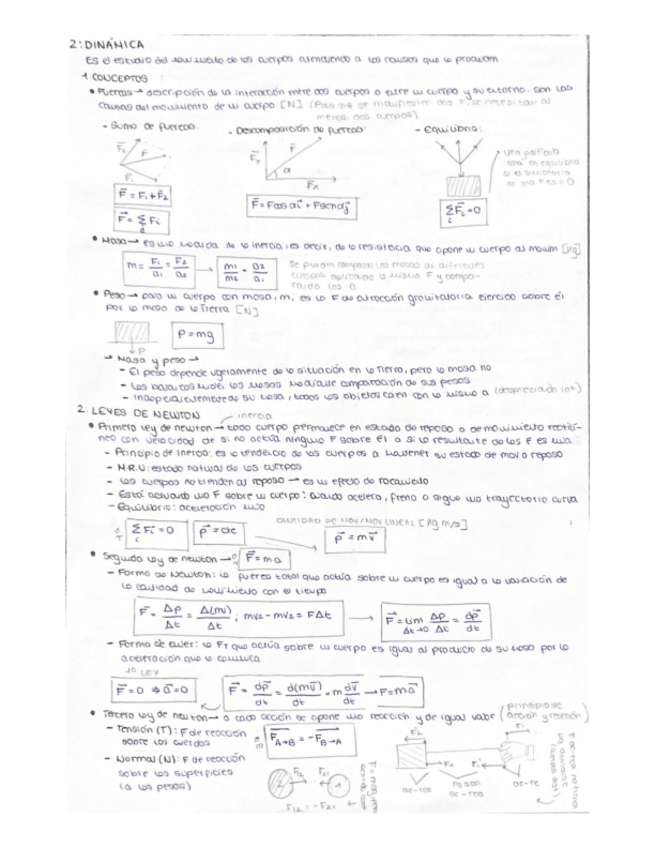 2: DINÁMICA
Es el estudio del movimiento de los cuerpos atendiendo a las causas que lo producen
1. CONCEPTOS
• Fuerzas → descripción de la interacción entre dos cuerpos o entre un cuerpo y su entorno. Son las
causas del movimiento de un cuerpo [N] (Para que se manifiesten dos F, se necesitan al
menos dos cuerpos)
- Suma de fuerzas: - Descomposición de fuerzas: - Equilibrio:
F₂ F F₁
Fy F α Fx
una partícula
está en equilibrio
si el sumatorio
de sus F es = 0
F = F₁ + F₂
F = Σ Fi
F = Fcosα i + Fsenα j
Σ Fi = 0
• Masa → es una medida de la inercia, es decir, de la resistencia que opone un cuerpo al movim [kg]
m = F₁/a₁ = F₂/a₂ → m₁/m₂ = a₂/a₁
se pueden comparar las masas de diferentes
cuerpos aplicando la misma F y compa-
rando las a
• Peso → para un cuerpo con masa, m, es la F de atracción gravitatoria ejercida sobre él
por la masa de la Tierra [N]
P = mg
P
→ Masa y peso →
- El peso depende ligeramente de la situación en la Tierra, pero la masa no
- Las balanzas miden las masas mediante comparación de sus pesos
- Independientemente de su masa, todos los objetos caen con la misma a (despreciando roz)
2. LEYES DE NEWTON
inercia
• Primera ley de newton → todo cuerpo permanece en estado de reposo o de movimiento rectilí-
neo con velocidad cte si no actúa ninguna F sobre él o si la resultante de las F es nula
- Principio de inercia: es la tendencia de los cuerpos a mantener su estado de mov o reposo
- M.R.U: estado natural de los cuerpos
- Los cuerpos no tienden al reposo → es un efecto de rozamiento
- Está actuando una F sobre un cuerpo: cuando acelera, frena o sigue una trayectoria curva
- Equilibrio: aceleración nula
CANTIDAD DE MOV/MOV LINEAL [kg m/s]
Σ Fi = 0 p = cte → p = mv
• Segunda ley de newton → F = ma
- Forma de Newton: la fuerza total que actúa sobre un cuerpo es igual a la variación de
la cantidad de movimiento con el tiempo
F = Δp/Δt = Δ(mv)/Δt, mv₂ - mv₂ = FΔt → F = lim Δt→0 Δp/Δt = dp/dt
- Forma de Euler: la FT que actúa sobre un cuerpo es igual al producto de su masa por la
aceleración que le comunica
1ª LEY
F = 0 ⇒ a = 0 F = dp/dt = d(mv)/dt = m dv/dt → F = ma
• Tercera ley de newton → a cada acción se opone una reacción y de igual valor (principio de
acción y reacción)
- Tensión (T): F de reacción
sobre las cuerdas
FA→B = -FB→A
- Normal (N): F de reacción
sobre las superficies
(a los pesos)
2 F₁₂ F₂₁ 1
F₁₂ = -F₂₁
ac-rea
no son
ac-rea
ac-re